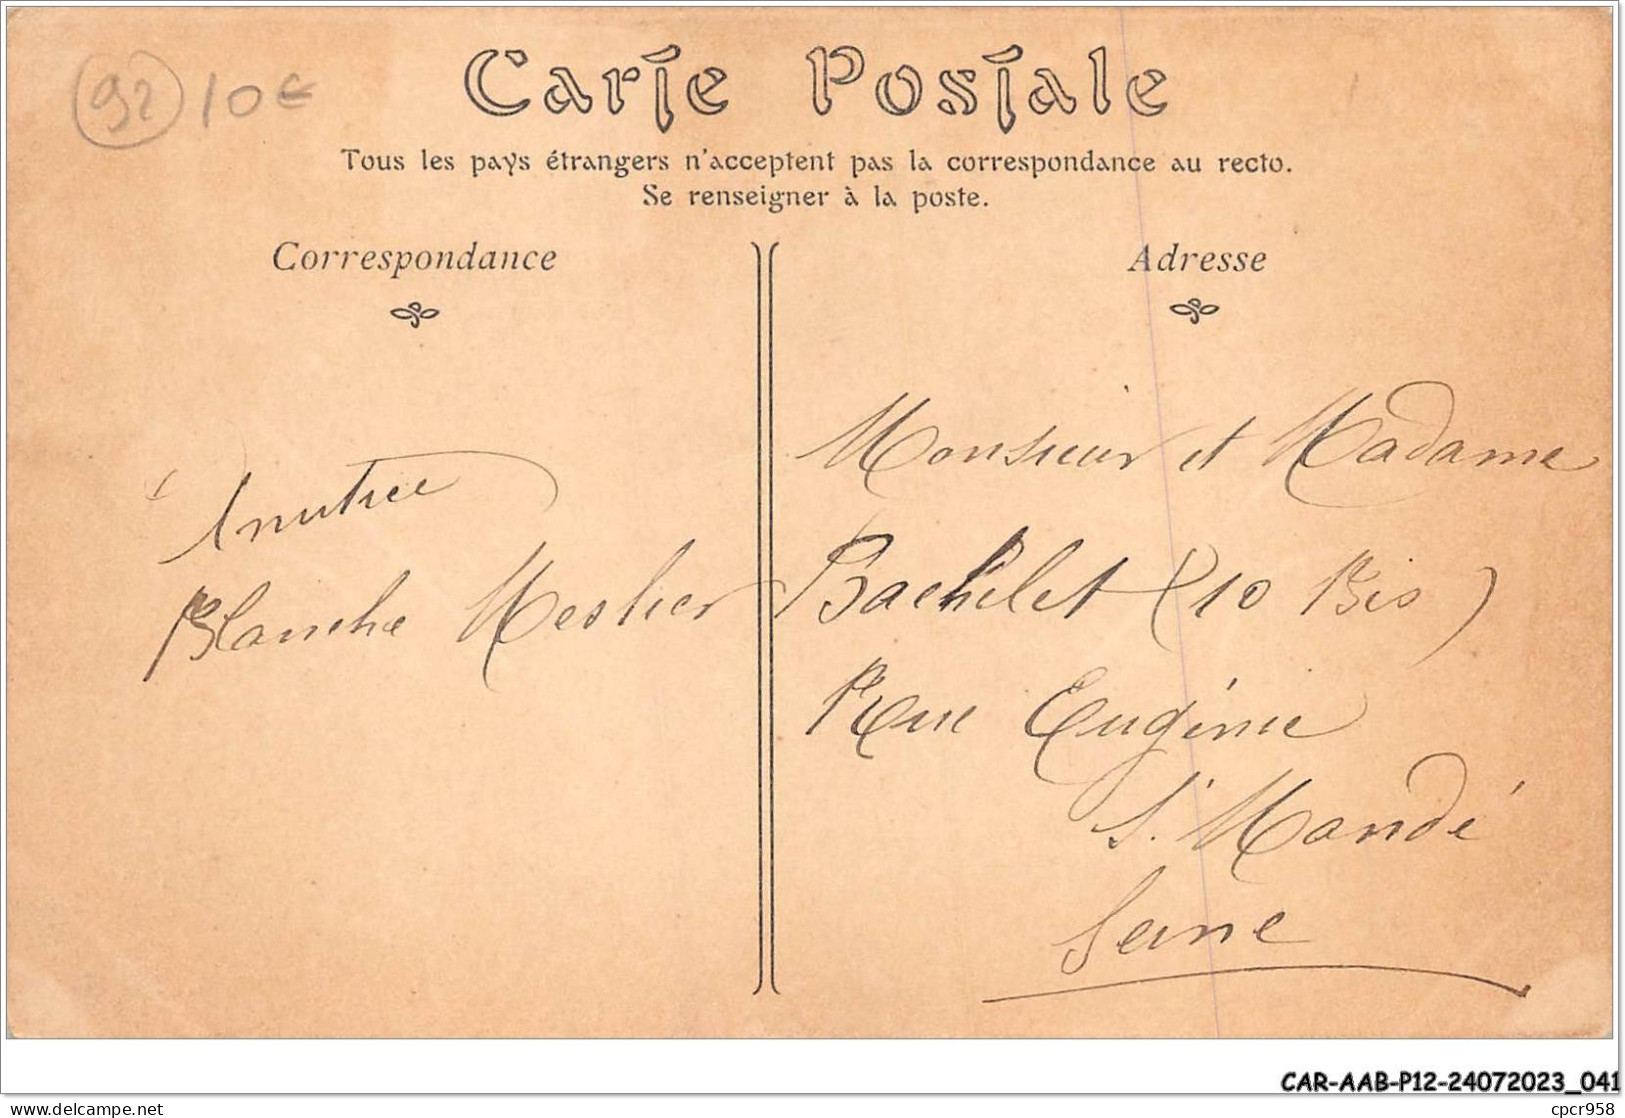 92 10€
Carte Postale
Tous les pays étrangers n'acceptent pas la correspondance au recto.
Se renseigner à la poste.
Correspondance
Adresse
Monsieur et Madame
Bachelet (10 Bis)
Rue Eugénie
St. Mandé
Seine
Amitiée
Blanche Meslier
CAR-AAB-P12-24072023_041
delcampe.net
cpcr958